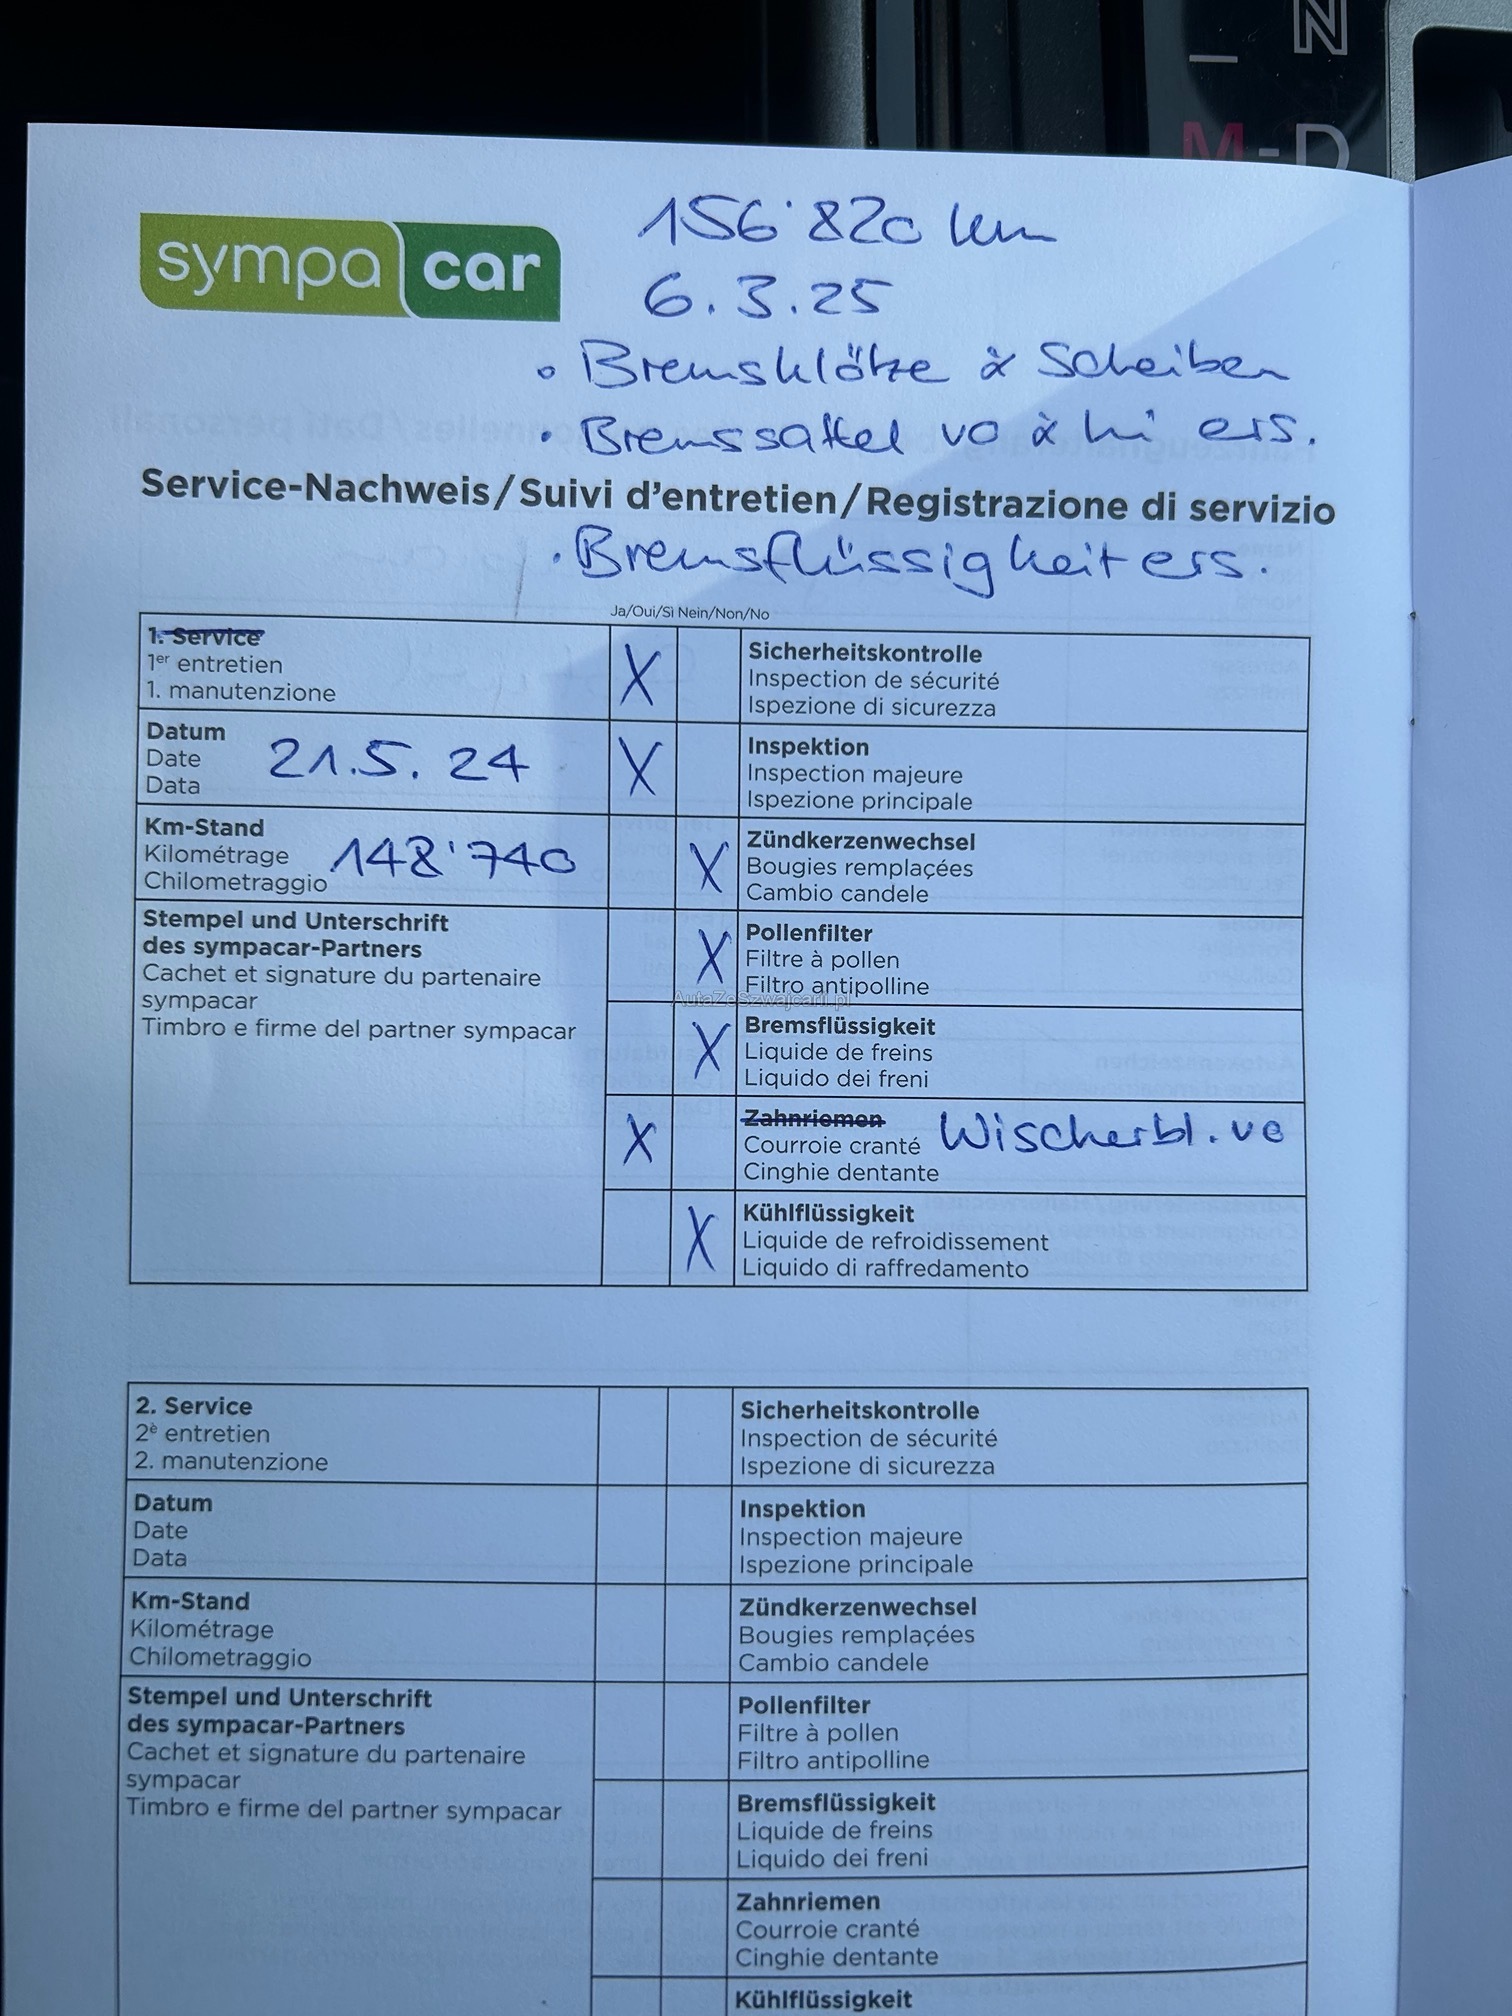 N
M-D
sympacar
156'820 km
6.3.25
• Bremsklötze & Scheiben
• Bremssattel vo & hi ers.
Service-Nachweis/Suivi d'entretien/Registrazione di servizio
• Bremsflüssigkeit ers.
Ja/Oui/Sì Nein/Non/No
1. Service
1er entretien
1. manutenzione
X
Sicherheitskontrolle
Inspection de sécurité
Ispezione di sicurezza
Datum
Date
Data
21.5.24
X
Inspektion
Inspection majeure
Ispezione principale
Km-Stand
Kilométrage
Chilometraggio
148'740
X
Zündkerzenwechsel
Bougies remplaçées
Cambio candele
Stempel und Unterschrift
des sympacar-Partners
Cachet et signature du partenaire
sympacar
Timbro e firme del partner sympacar
X
Pollenfilter
Filtre à pollen
Filtro antipolline
AutaZeSzwajcarii.pl
X
Bremsflüssigkeit
Liquide de freins
Liquido dei freni
X
Zahnriemen
Courroie cranté
Cinghie dentante
Wischerbl. vo
X
Kühlflüssigkeit
Liquide de refroidissement
Liquido di raffredamento
2. Service
2è entretien
2. manutenzione
Sicherheitskontrolle
Inspection de sécurité
Ispezione di sicurezza
Datum
Date
Data
Inspektion
Inspection majeure
Ispezione principale
Km-Stand
Kilométrage
Chilometraggio
Zündkerzenwechsel
Bougies remplaçées
Cambio candele
Stempel und Unterschrift
des sympacar-Partners
Cachet et signature du partenaire
sympacar
Timbro e firme del partner sympacar
Pollenfilter
Filtre à pollen
Filtro antipolline
Bremsflüssigkeit
Liquide de freins
Liquido dei freni
Zahnriemen
Courroie cranté
Cinghie dentante
Kühlflüssigkeit